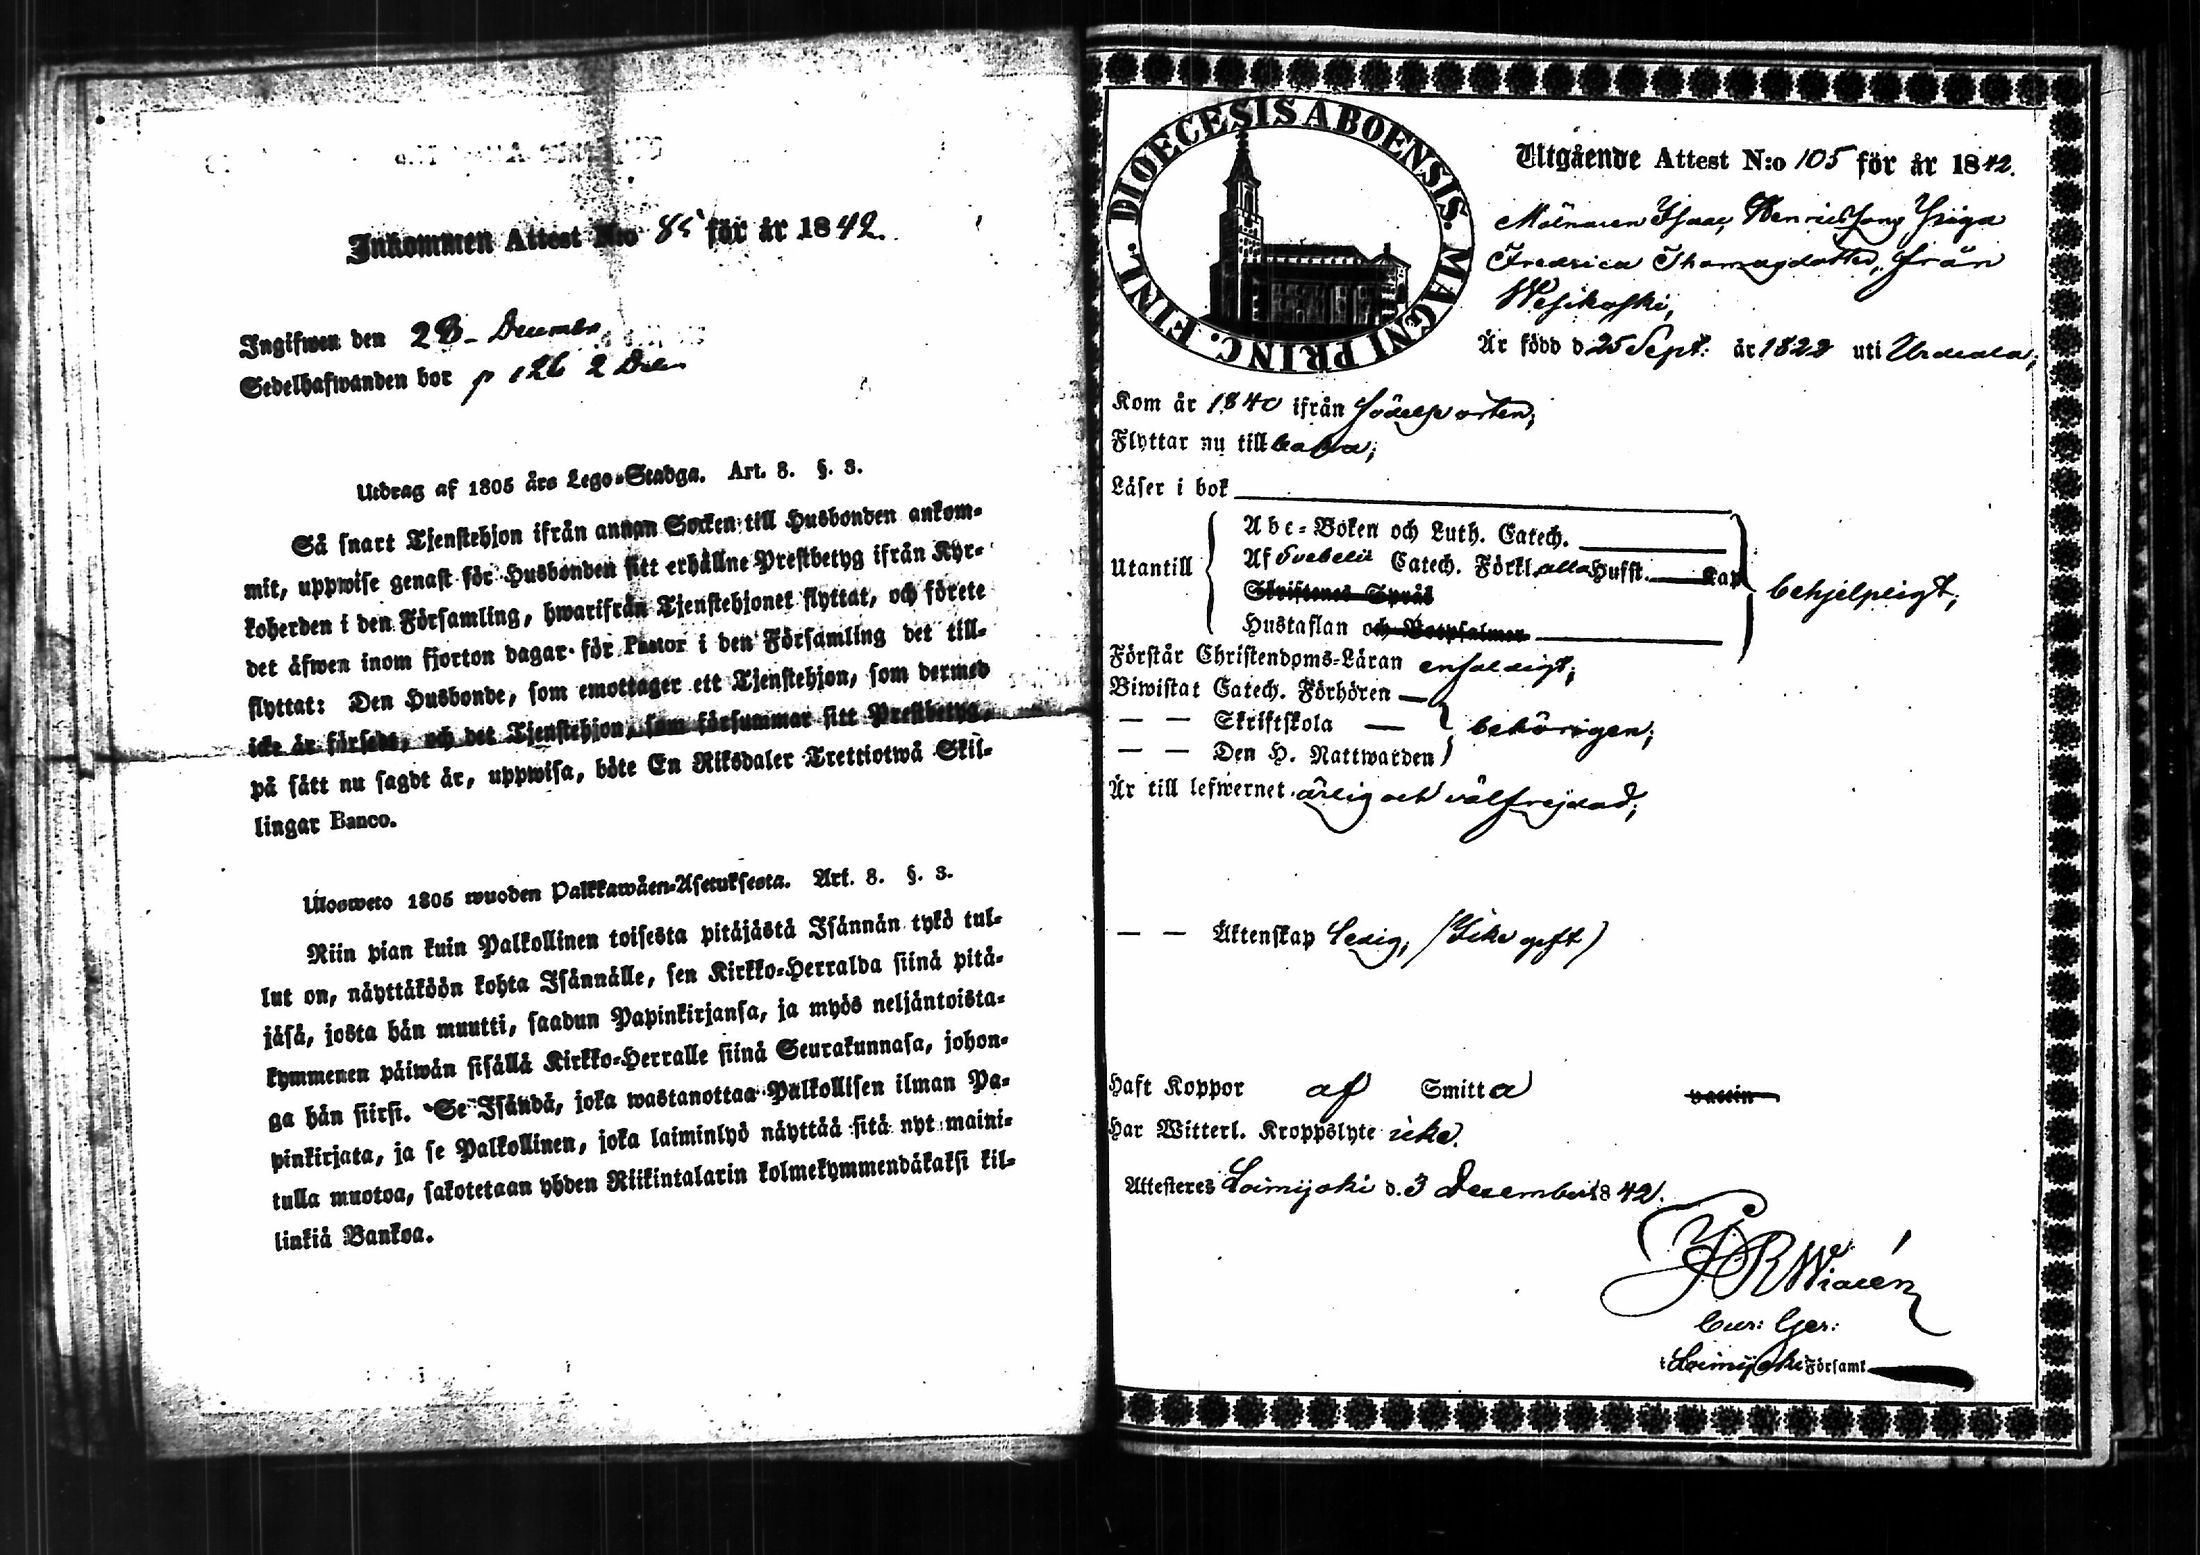 Inkommen Attest N:o 85 för år 1842.
Ingifwen den 28 December
Sedelhafwanden bor p 126 2 Delen
Utdrag af 1805 års Lego-Stadga. Art. 8. §. 3.
Så snart Tjenstehjon ifrån annan Socken till Husbonden ankom-
mit, uppwise genast för Husbonden sitt erhållne Prestbetyg ifrån Kyr-
koherden i den Församling, hwarifrån Tjenstehjonet flyttat, och förete
det äfwen inom fjorton dagar för Pastor i den Församling det till-
flyttat: Den Husbonde, som emottager ett Tjenstehjon, som dermed
icke är försedt, och det Tjenstehjon, som försummar sitt Prestbetyg,
på sätt nu sagdt är, uppwisa, böte En Riksdaler Trettiotwå Skil-
lingar Banco.
Ulosweto 1805 wuoden Palkkawäen-Asetuksesta. Art. 8. §. 3.
Niin pian kuin Palkollinen toisesta pitäjästä Isännän tykö tul-
lut on, näyttäköön kohta Isännälle, sen Kirkko-Herralda siinä pitä-
jäsä, josta hän muutti, saadun Papinkirjansa, ja myös neljäntoista-
kymmenen päiwän sisällä Kirkko-Herralle siinä Seurakunnasa, johon-
ga hän siirsi. Se Isändä, joka wastanottaa Palkollisen ilman Pa-
pinkirjata, ja se Palkollinen, joka laiminlyö näyttää sitä nyt maini-
tulla muotoa, sakotetaan yhden Riikintalarin kolmekymmendäkaksi kil-
linkiä Bankoa.
DIOECESIS ABOENSIS. MAGNI PRINC. FINL.
Utgående Attest N:o 105 för år 1842.
Mölnaren Isaac Henricssons Piga
Fredrica Thomasdotter, från
Wesikoski,
Är född d. 25 Sept. år 1822 uti Urdiala;
Kom år 1840 ifrån födelse orten;
Flyttar nu tillbaka;
Läser i bok
Utantill
Abc-Boken och Luth. Catech.
Af Svebelii Catech. Förkl. alla Hufst. Kap
Skriftenes Språk
Hustaflan och Botpsalmer
behjelpligt;
Förstår Christendoms-Läran enfaldigt;
Biwistat Catech. Förhören
— — Skriftskola —
— — Den H. Nattwarden
behörigen;
Är till lefwernet ärlig och välfrejdad;
— — Äktenskap ledig, (Icke gift)
Haft Koppor af Smitta vaccin
Har Witterl. Kroppslyte icke.
Attesteres Loimijoki d. 3 December 1842.
i Loimijoki Församl